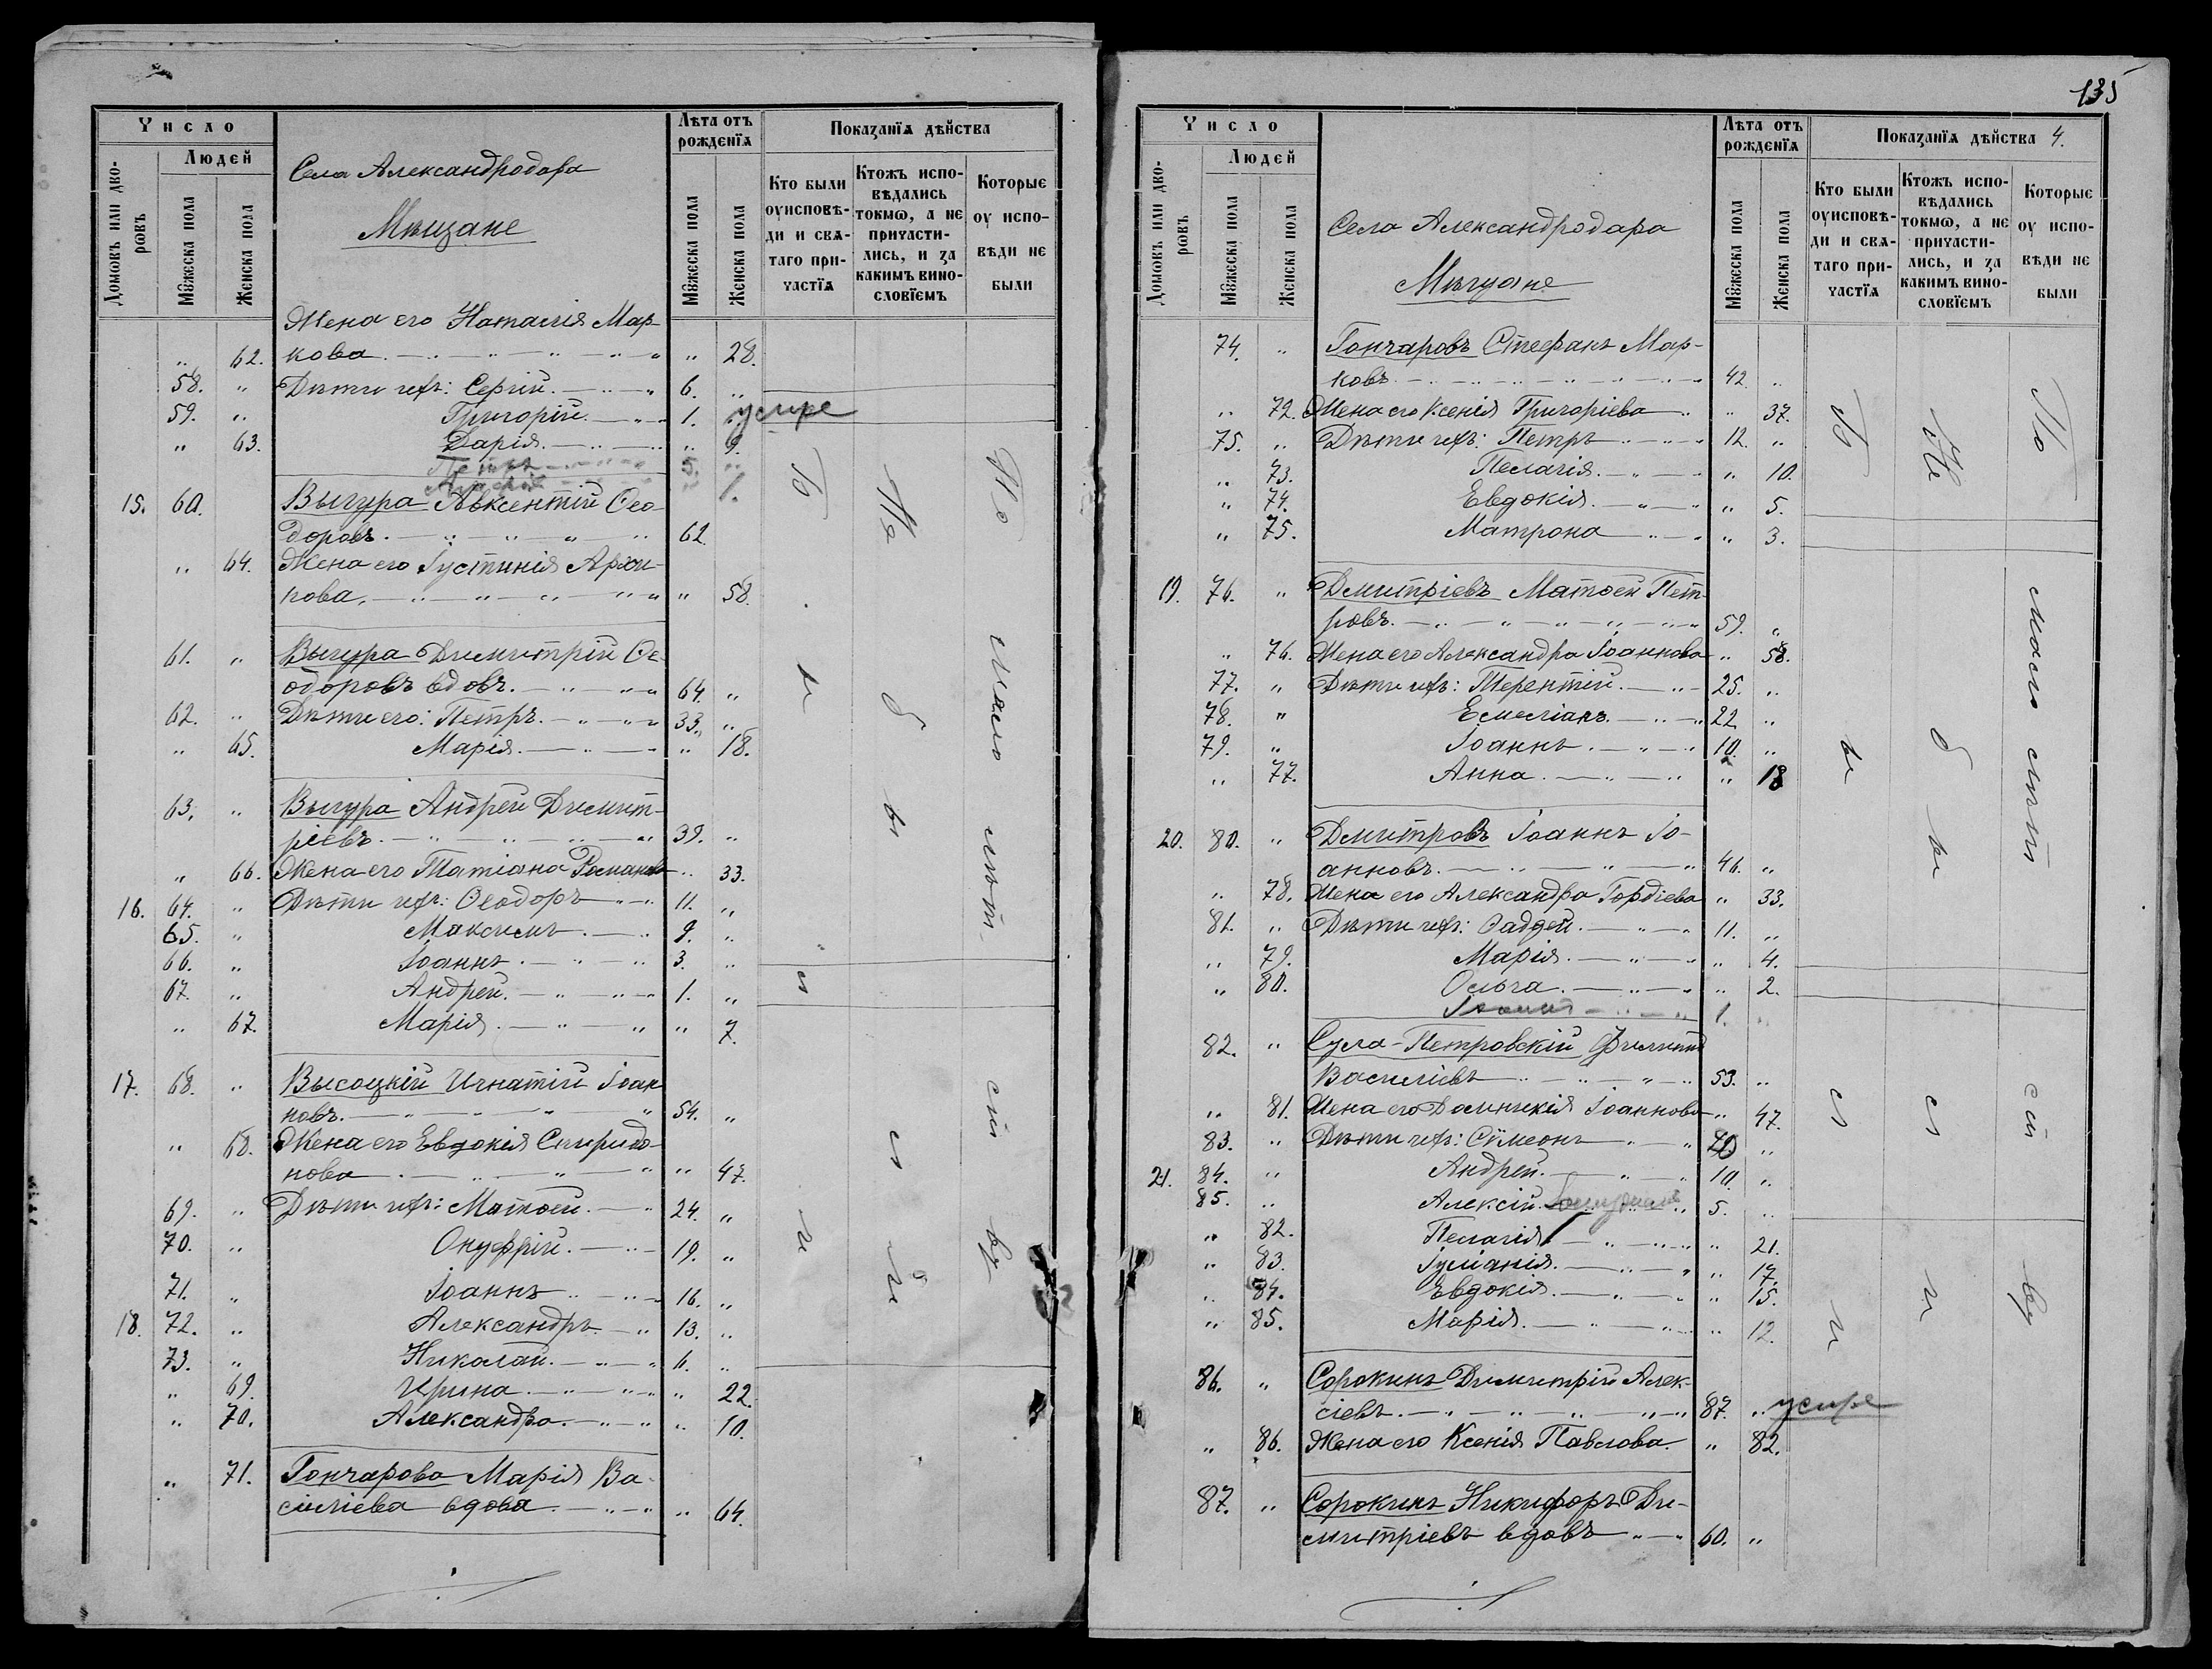 Число
Людей
Домовъ или дворѡвъ
Мꙋжеска пола
Женска пола
Села Александродара
Мѣщане
Лѣта отъ рожденїѧ
Мꙋжеска пола
Женска пола
Показанїѧ дѣйства
Кто были оуисповѣди и свѧтаго причастїѧ
Ктожъ исповѣдались токмѡ, а не причастились, и за какимъ винословїемъ
Которые оу исповѣди не были
Жена его Наталія Мар-
„ 62. кова. „ 28.
58. „ Дѣти ихъ: Сергій. 6. „
59. „ Григорій. 1. „ умре
„ 63. Дарія. „ 9.
Петръ 5. „
„ 1.
15. 60. Выгура Авксентій Ѳео-
доровъ. 62.
„ 64. Жена его Іустинія Архи-
пова. „ 58.
61. „ Выгура Димитрій Ѳе-
одоровъ вдовъ. 64. „
62. „ Дѣти его: Петръ. 33. „
„ 65. Марія. „ 18.
63. „ Выгура Андрей Димит-
ріевъ. 39. „
„ 66. Жена его Татіана Романова „ 33.
16. 64. „ Дѣти ихъ: Ѳеодоръ 11. „
65. „ Максимъ. 9. „
66. „ Іоаннъ. 3. „
67. „ Андрей. 1. „
„ 67. Марія. „ 7.
17. 68. „ Высоцкій Игнатій Іоан-
новъ. 54. „
„ 68. Жена его Евдокія Спиридо-
нова „ 47.
69. „ Дѣти ихъ: Матѳей. 24. „
70. „ Онуфрій. 19. „
71. „ Іоаннъ 16. „
18. 72. „ Александръ. 13. „
73. „ Николай. 6. „
„ 69. Ирина. „ 22.
„ 70. Александра. „ 10.
„ 71. Гончарова Марія Ва-
силіева вдова. „ 64.
Были
Не были
По малолѣт.
135
Число
Людей
Домовъ или дворѡвъ
Мꙋжеска пола
Женска пола
Села Александродара
Мѣщане
Лѣта отъ рожденїѧ
Мꙋжеска пола
Женска пола
Показанїѧ дѣйства 4.
Кто были оуисповѣди и свѧтаго причастїѧ
Ктожъ исповѣдались токмѡ, а не причастились, и за какимъ винословїемъ
Которые оу исповѣди не были
74. „ Гончаровъ Стефанъ Мар-
ковъ. 42. „
„ 72. Жена его Ксенія Григоріева „ 37.
75. „ Дѣти ихъ: Петръ 12. „
„ 73. Пелагія. „ 10.
„ 74. Евдокія. „ 5.
„ 75. Матрона „ 3.
19. 76. „ Дмитріевъ Матѳей Пет-
ровъ. 59. „
„ 76. Жена его Александра Іоаннова „ 58.
77. „ Дѣти ихъ: Терентій. 25. „
78. „ Емеліанъ. 22. „
79. „ Іоаннъ. 10. „
„ 77. Анна. „ 18
20. 80. „ Дмитровъ Іоаннъ Іо-
анновъ. 46. „
„ 78. Жена его Александра Гордіева „ 33.
81. „ Дѣти ихъ: Ѳаддей. 11. „
„ 79. Марія. „ 4.
„ 80. Ольга. „ 2.
1. „
82. „ Сула-Петровскій Филиппъ
Василіевъ 53. „
„ 81. Жена его Домникія Іоаннова „ 47.
83. „ Дѣти ихъ: Сѷмеонъ „
21. 84. „ Андрей. 10. „
85. „ Алексій. 5. „
„ 82. Пелагія „ 21.
„ 83. Іуліанія. „ 17.
„ 84. Евдокія. „ 15.
„ 85. Марія. „ 12.
86. „ Сорокинъ Димитрій Алек-
сіевъ. 87. „ умре
„ 86. Жена его Ксенія Павлова. „ 82.
87. „ Сорокинъ Никифоръ Ди-
митріевъ вдовъ 60. „
Были
Не были
По малолѣт